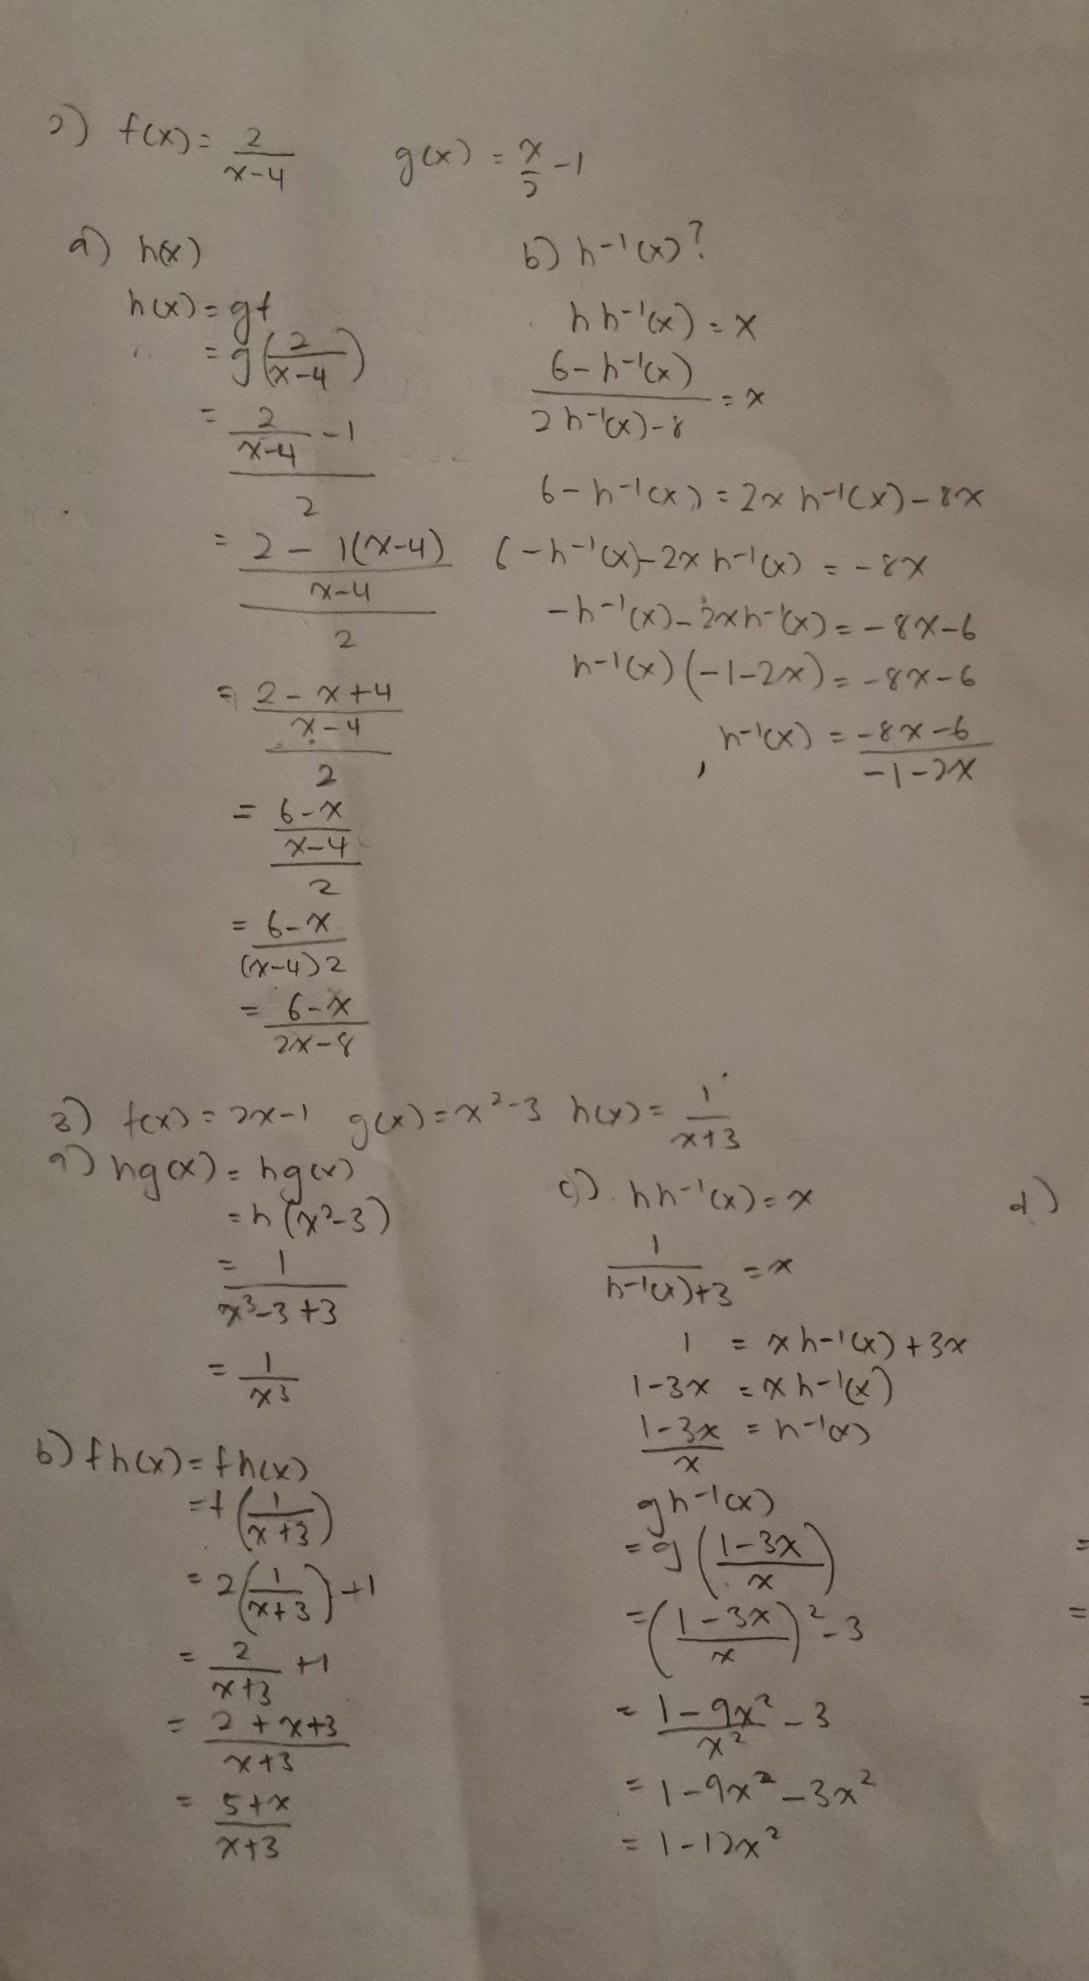 2) f(x) = 2/(x-4)   g(x) = x/2 - 1
a) h(x)
h(x) = gf
= g(2/(x-4))
= (2/(x-4) - 1)/2
= ((2 - 1(x-4))/(x-4))/2
= ((2-x+4)/(x-4))/2
= ((6-x)/(x-4))/2
= (6-x)/((x-4)2)
= (6-x)/(2x-8)
b) h⁻¹(x)?
hh⁻¹(x) = x
(6-h⁻¹(x))/(2h⁻¹(x)-8) = x
6-h⁻¹(x) = 2xh⁻¹(x)-8x
6-h⁻¹(x)-2xh⁻¹(x) = -8x
-h⁻¹(x)-2xh⁻¹(x) = -8x-6
h⁻¹(x)(-1-2x) = -8x-6
h⁻¹(x) = (-8x-6)/(-1-2x)
3) f(x) = 2x-1   g(x) = x²-3   h(x) = 1/(x+3)
a) hg(x) = hg(x)
= h(x²-3)
= 1/(x³-3+3)
= 1/x³
b) fh(x) = fh(x)
= f(1/(x+3))
= 2(1/(x+3))+1
= 2/(x+3) +1
= (2+x+3)/(x+3)
= (5+x)/(x+3)
c) hh⁻¹(x) = x
1/(h⁻¹(x)+3) = x
1 = xh⁻¹(x)+3x
1-3x = xh⁻¹(x)
(1-3x)/x = h⁻¹(x)
gh⁻¹(x)
= g((1-3x)/x)
= ((1-3x)/x)²-3
= (1-9x²)/x² - 3
= 1-9x²-3x²
= 1-12x²
d)
=
=
=